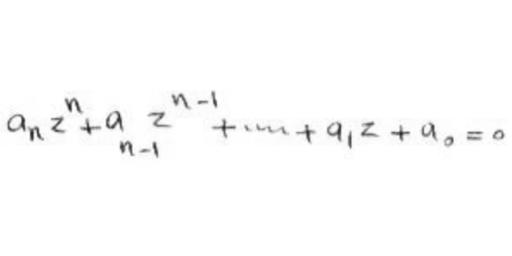 aₙzⁿ + aₙ₋₁ zⁿ⁻¹ + ..... + a₁z + a₀ = 0